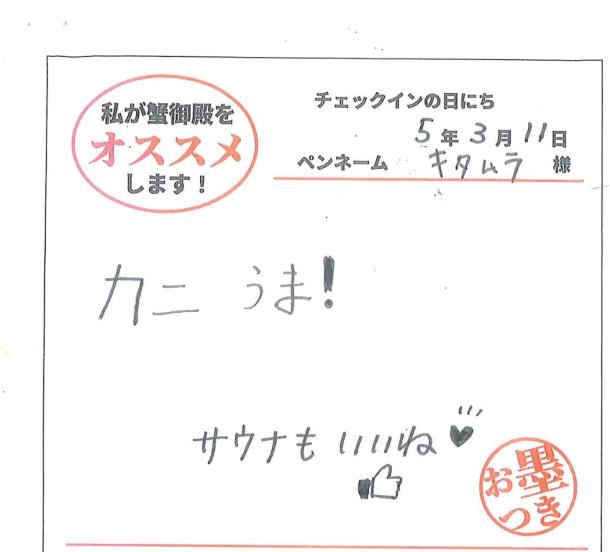 私が蟹御殿を
オススメ
します！
チェックインの日にち
5年3月11日
ペンネーム キタムラ 様
カニ うま!
サウナも いいね
お墨
つき